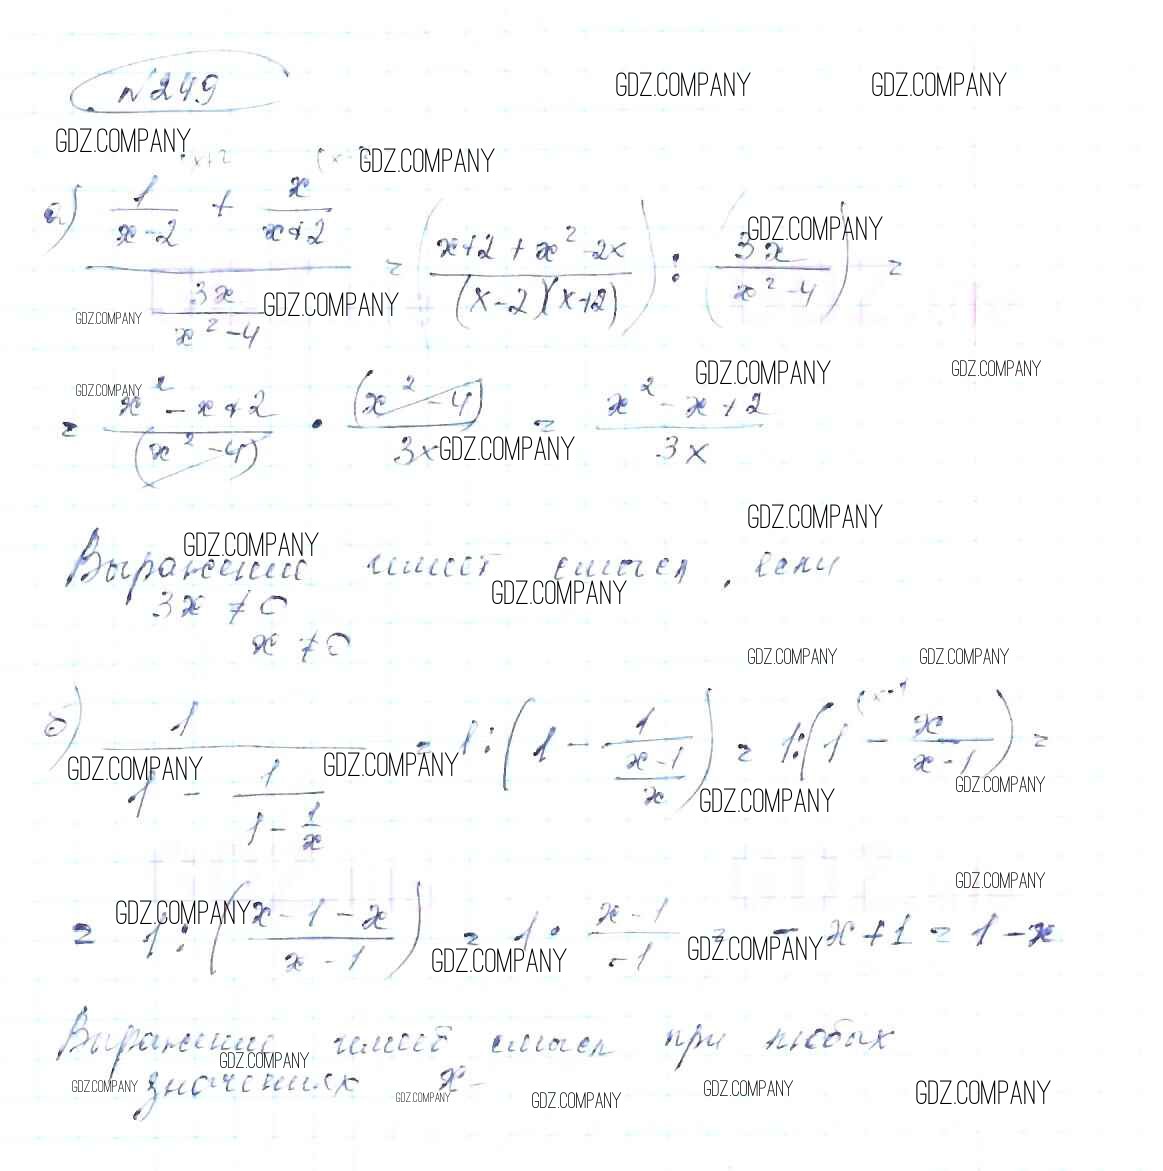 №249
GDZ.COMPANY GDZ.COMPANY
GDZ.COMPANY GDZ.COMPANY
x+2
а) 1/(x-2) + x/(x+2) / 3x/(x²-4) = ((x+2+x²-2x)/((x-2)(x+2))) : (3x/(x²-4)) =
GDZ.COMPANY
GDZ.COMPANY GDZ.COMPANY
GDZ.COMPANY GDZ.COMPANY GDZ.COMPANY
= (x²-x+2)/(x²-4) · (x²-4)/3x = (x²-x+2)/3x
GDZ.COMPANY
GDZ.COMPANY GDZ.COMPANY
Выражение имеет смысл, если
GDZ.COMPANY
3x ≠ 0
x ≠ 0
GDZ.COMPANY GDZ.COMPANY
б) 1/(1 - 1/(1 - 1/x)) = 1:(1 - 1/((x-1)/x)) = 1:(1 - x/(x-1)) =
GDZ.COMPANY GDZ.COMPANY GDZ.COMPANY GDZ.COMPANY
GDZ.COMPANY
= 1:((x-1-x)/(x-1)) = 1· (x-1)/-1 = -x+1 = 1-x
GDZ.COMPANY GDZ.COMPANY GDZ.COMPANY
Выражение имеет смысл при любых
GDZ.COMPANY
значениях x
GDZ.COMPANY GDZ.COMPANY GDZ.COMPANY GDZ.COMPANY GDZ.COMPANY